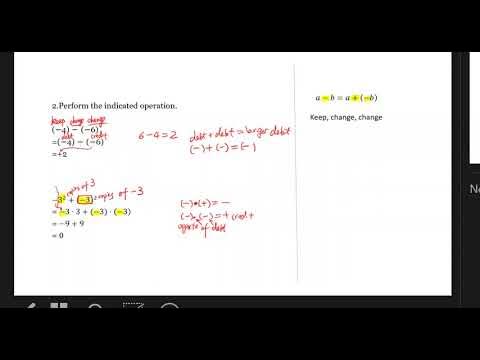 2.Perform the indicated operation.
keep change change
(−4) − (−6)
debt credit
=(−4) − (−6)
=+2
6−4=2
debt + debt = larger debt
(−) + (−) = (−)
2 copies of 3
2 copies of −3
−3² + (−3)²
= −3 · 3 + (−3) · (−3)
= −9 + 9
= 0
(−)•(+) = −
(−)•(−) = +
opposite of debt
a − b = a + (−b)
Keep, change, change